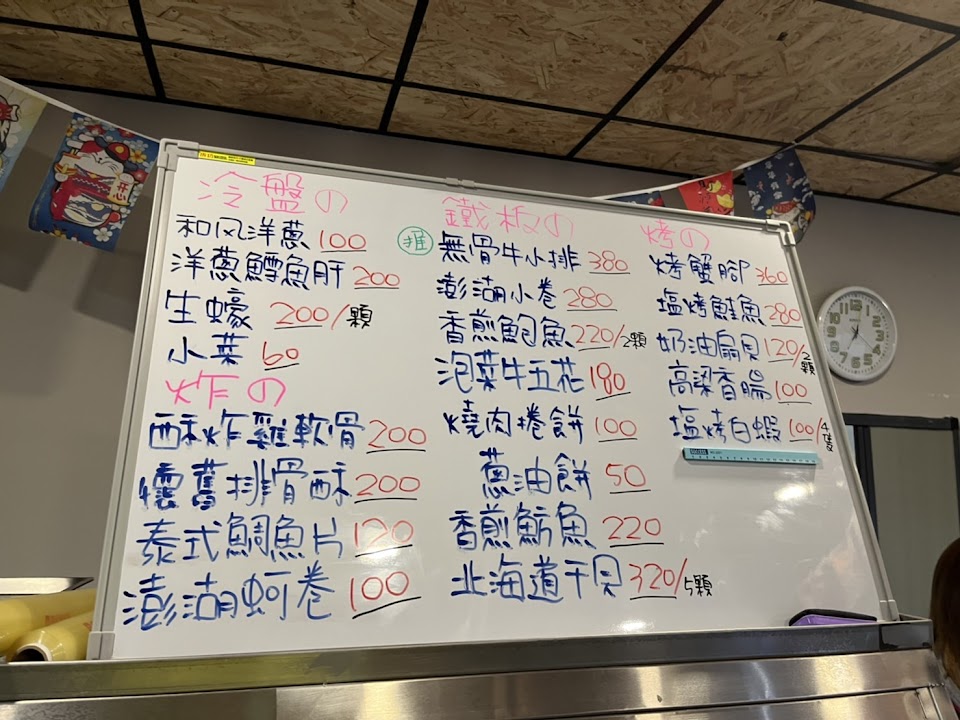 冷盤の
和风洋蔥 100
洋蔥鱈魚肝 200
生蠔 200/顆
小菜 60
炸の
酥炸雞軟骨 200
懷舊排骨酥 200
泰式鯛魚片 120
澎湖蚵卷 100
鐵板の
推 無骨牛小排 380
澎湖小卷 280
香煎鮑魚 220/2顆
泡菜牛五花 180
燒肉捲餅 100
蔥油餅 50
香煎魴魚 220
北海道干貝 320/5顆
烤の
烤蟹腳 360
塩烤鮭魚 280
奶油扇貝 120/2顆
高粱香腸 100
塩烤白蝦 100/4隻